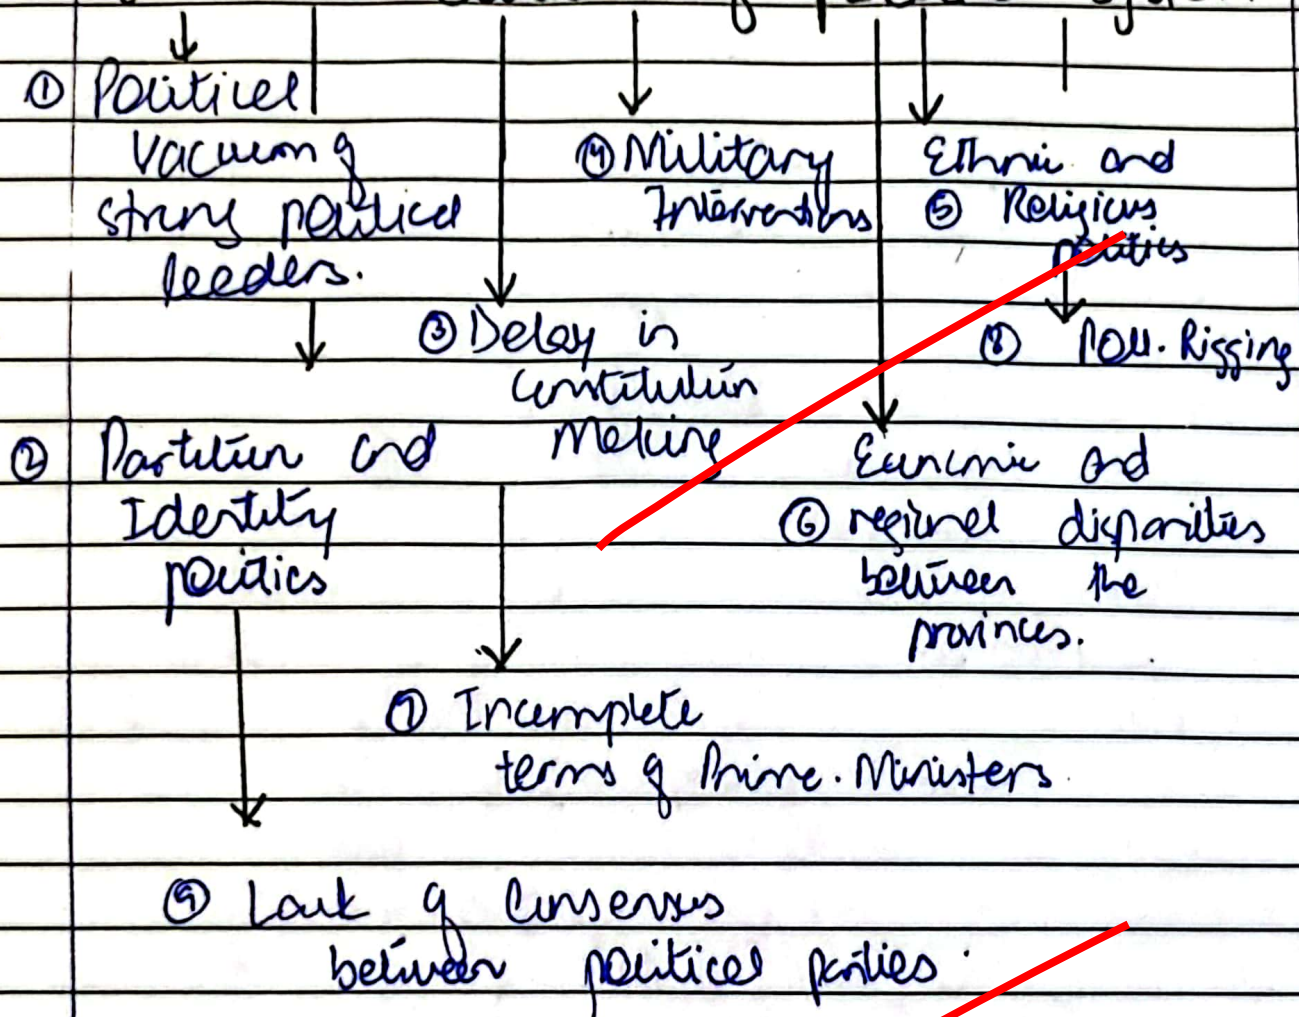 ① Political
Vacuum of
strong political
leaders.
② Partition and
Identity
politics
③ Delay in
Constitution
Making
④ Military
Interventions
Ethnic and
⑤ Religious
politics
⑧ Poll. Rigging
Economic and
⑥ regional disparities
between the
provinces.
⑦ Incomplete
terms of Prime. Ministers
⑨ Lack of Consenses
between political parties